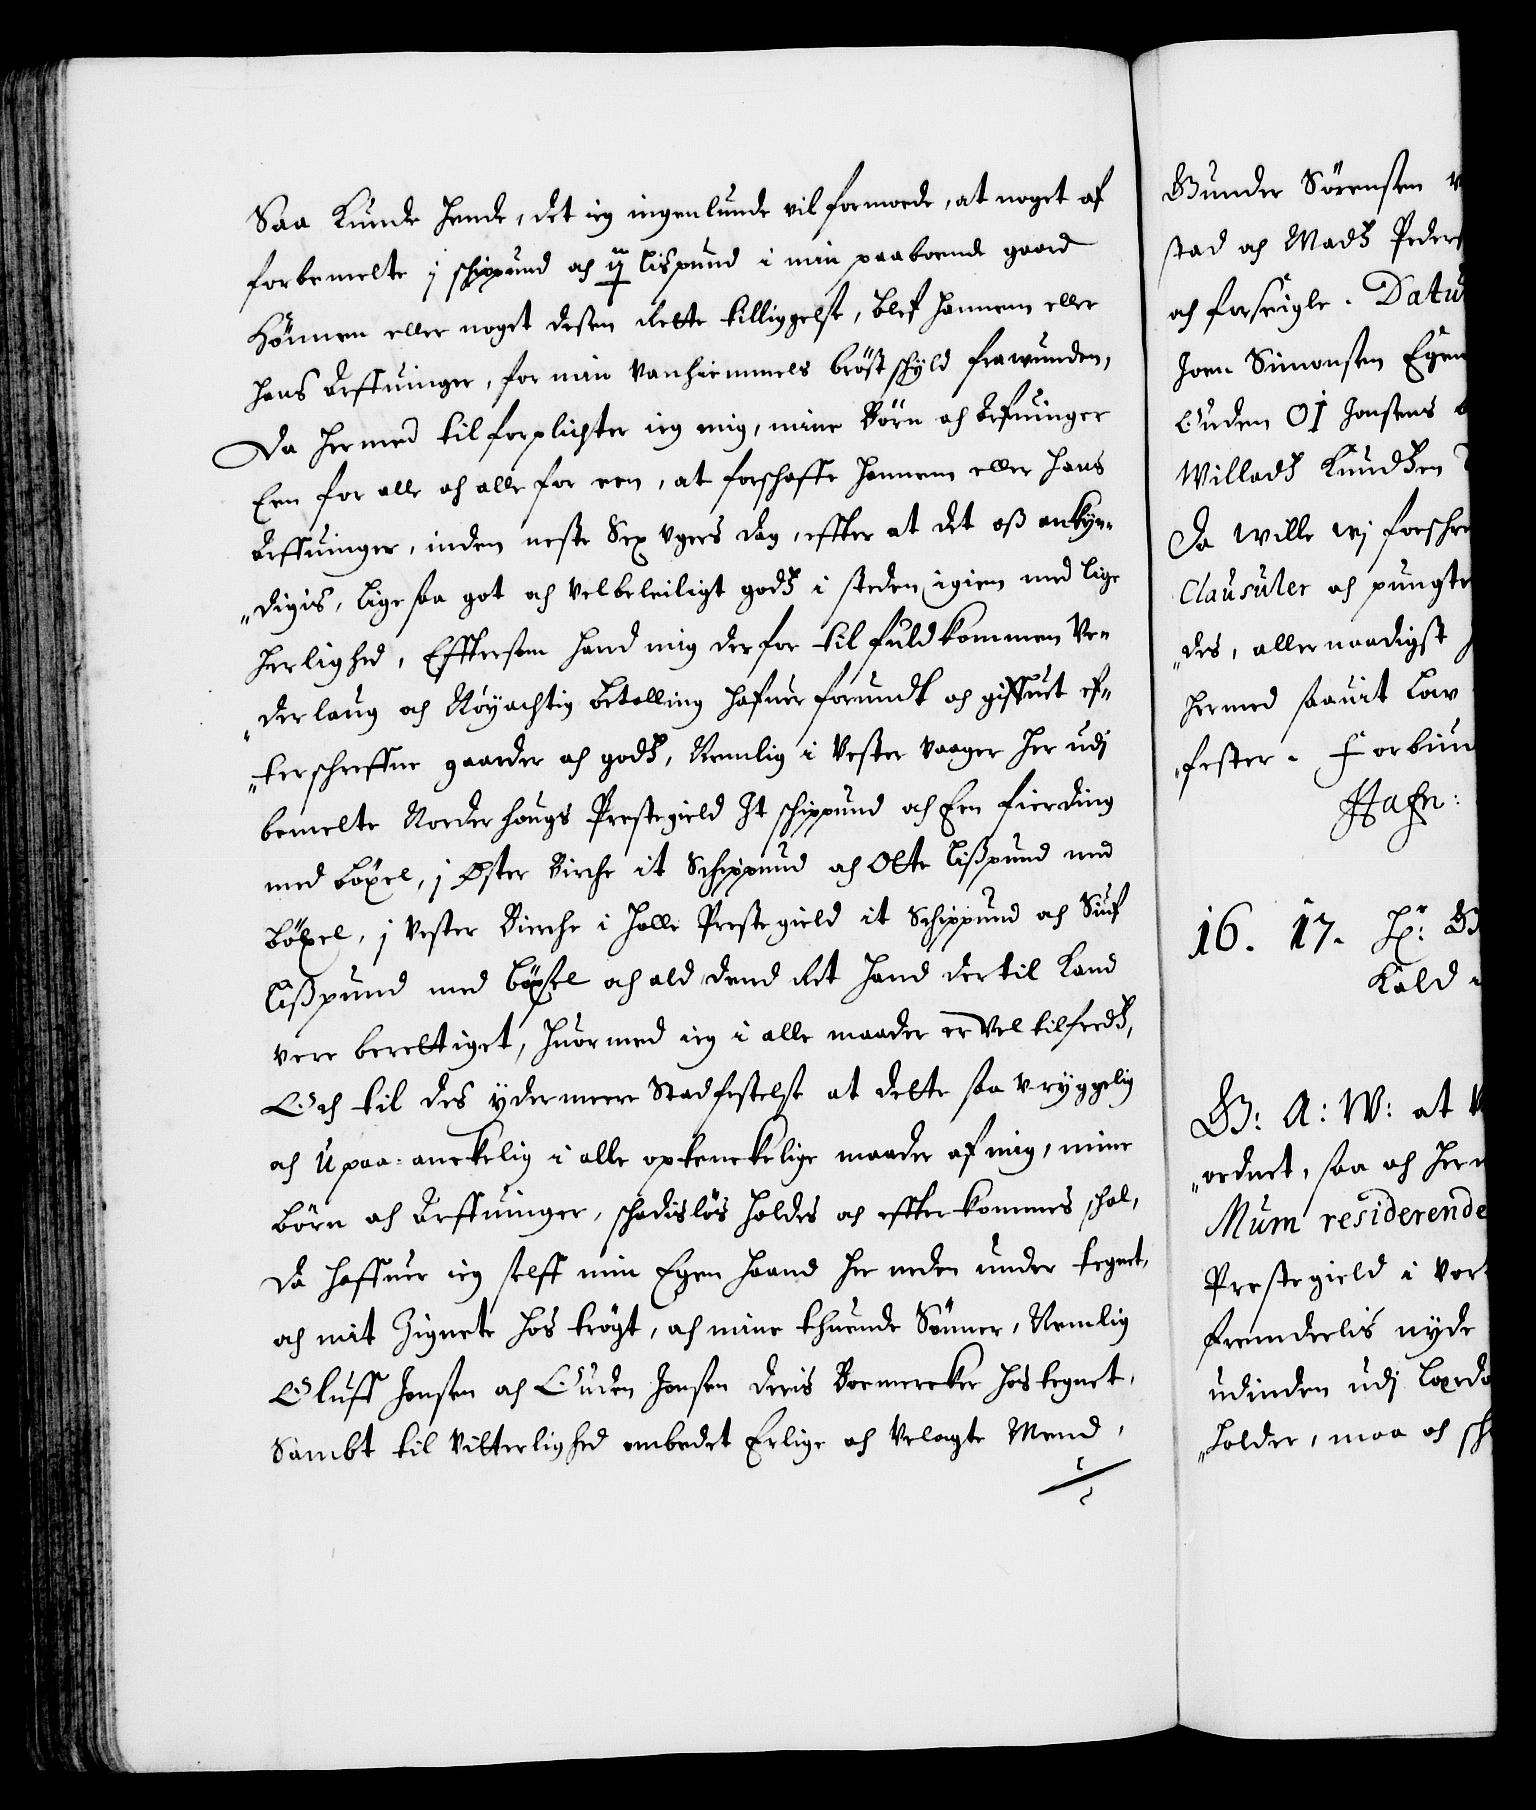 Saa Kunde hende, det ieg ingenlunde vil formode, at noget af
forbemelte j schippund och lispund i min paaboende gaard
Hönnen eller noget desen rette tilliggelse, blef hannem eller
hans Arffuinger, for min vanhiemmels bröst schyld frawunden,
Da hermed tilforplichter ieg mig, mine Börn och Arfuinger
Een for alle och alle for een, at forschaffe hannem eller hans
Arffuinger, inden neste Sex Ugers dag, effter at det oß ankyn„
„digis, lige saa got och velbeleiligt godtz i steden igien med lige
herlighed, Efftersom hand mig derfor til fuldkommen Ve„
„derlaug och Nöyachtig betalling hafuer forundt och gifuet ef„
„terschreffne gaarder och godtz, Nemlig i Vester Vaager her udj
bemelte Norderhougs Prestegield It schippund och Een fierding
med böxel, j Øster Birche it Schippund och Otte lißpund med
böxel, j Vester Birche i Holle Prestegield it Schippund och Siuf
lißpund med böxsel och ald dend ret hand dertil Kand
vere berettiget, huormed ieg i alle maader er vel tilfredtz,
Och til des ydermeere Stadfestelse at dette saa vryggelig
och Upaa-anckelig i alle optenckelige maader af mig, mine
Börn och Arffuinger, schadislös holdes och effterkommes schal,
Da haffuer ieg selff min Egen haand her neden under tegnet,
och mit Zignete hos trögt, och mine thuende Sönner, Nemlig
Oluff Jonsen och Guden Jonsen deris Boemercker hos tegnet,
Sambt til Vitterlighed ombedet Erlige och Velagte Mend,
Gunder Sörensen
stad och Madtz Peders
och forseigle. Datu
Joen Simonsen Egen
Guden OI Jonsens
Willadtz Knudtzen
Da wille wj forschre
Clausuler och pungte
„des, allernaadigst
hermed saauit Low
„fester. Forbiud
Hafn:
16. 17. Hr: G
Kald
G: A: W: at
„ordnet, saa och her
Mum residerende
Prestegield i vor
fremdeelis nyde
udinden udj
„holder, maa och sch